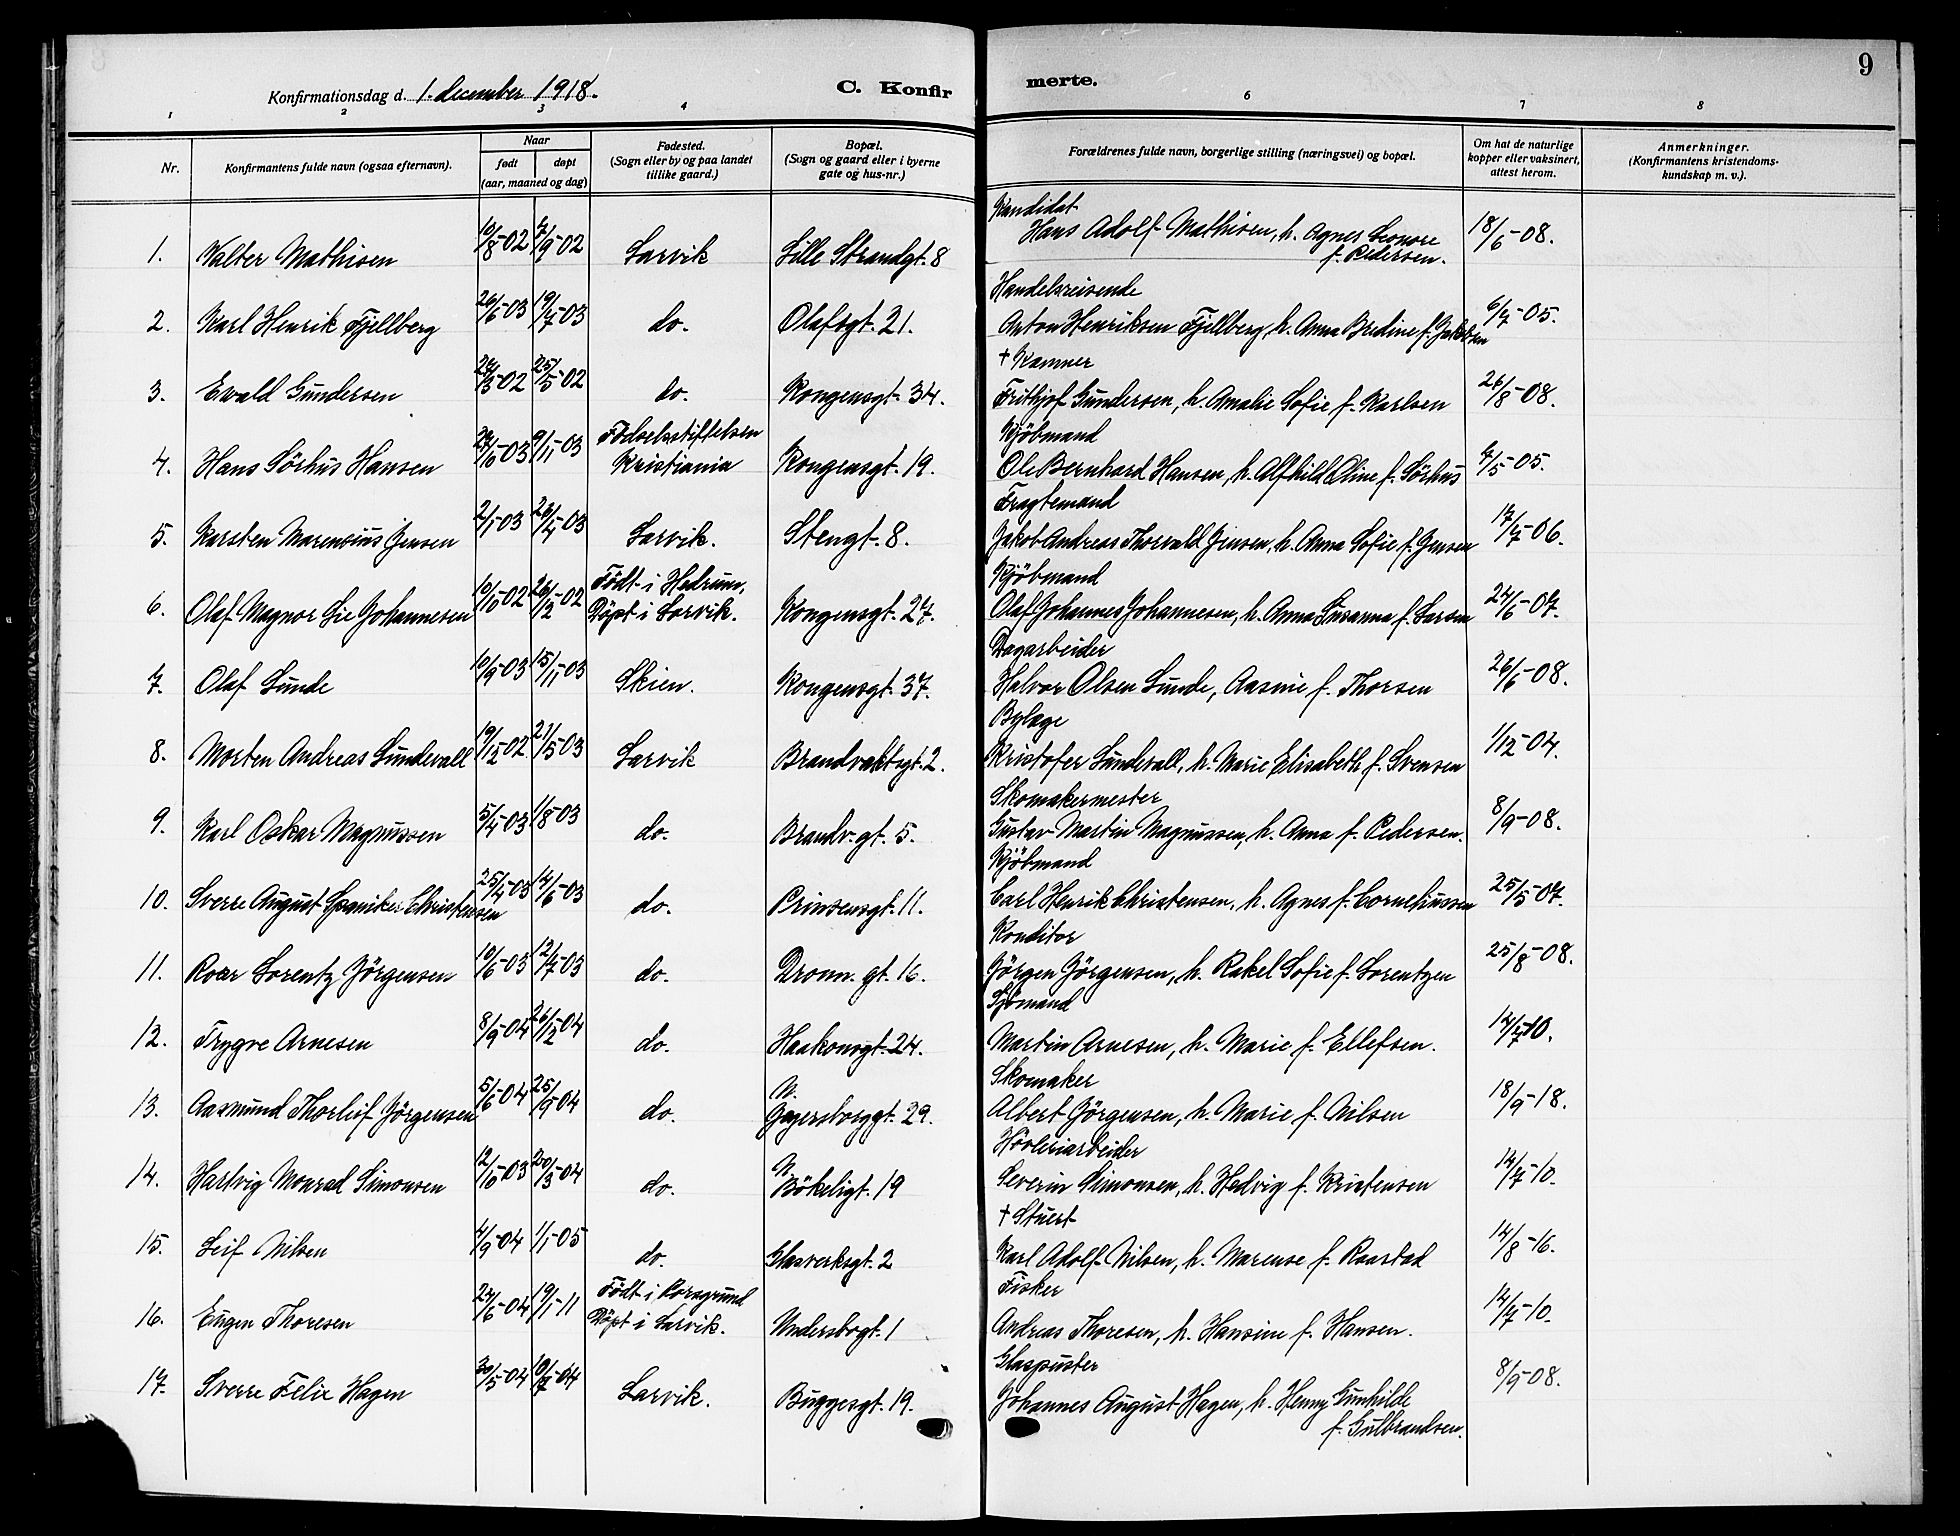 9
Konfirmationsdag d. 1. december 1918.
C. Konfir
merte.
1 2 3 4 6 7 8
Nr.
Konfirmantens fulde navn (ogsaa efternavn).
Naar
født
døpt
(aar, maaned og dag)
Fødested.
(Sogn eller by og paa landet
tillike gaard.)
Bopæl.
(Sogn og gaard eller i byerne
gate og hus-nr.)
Forældrenes fulde navn, borgerlige stilling (næringsvei) og bopæl.
Om hat de naturlige
kopper eller vaksinert,
attest herom.
Anmerkninger.
(Konfirmantens kristendoms-
kundskap m. v.).
Kandidat
1. Walter Mathisen 10/8-02 7/9-02 Larvik Lille Strandgt. 8 Hans Adolf Mathisen, h. Agnes Leonore 18/6-08.
f. Pedersen.
Handelsreisende
2. Karl Henrik Fjellberg 26/6-03 19/7-03 do. Olafsgt. 21. Anton Henriksen Fjellberg, h. Anna Bredine f. Jakobsen 6/7-05.
† Kamner
3. Ewald Gundersen 27/3-02 25/5-02 do. Kongensgt. 34. Frithjof Gundersen, h. Amalie Sofie f. Karlsen 26/8-08.
Fødselsstiftelsen Kjöbmand
4. Hans Sörhus Hansen 27/10-03 9/11-03 Kristiania Kongensgt. 19. Ole Bernhard Hansen, h. Alfhild Oline f. Sörhus 4/5-05.
Fragtemand
5. Karsten Marensius Jensen 2/1-03 26/4-03 Larvik. Stengt. 8. Jakob Andreas Thorvald Jensen, h. Anna Sofie f. Jensen 17/7-06.
Födt i Hedrum, Kjöbmand
6. Olaf Magnor Lie Johannesen 10/10-02 26/12-02 Döpt i Larvik. Kongensgt. 27. Olaf Johannes Johannesen, h. Anna Susanna f. Larsen 24/6-07.
Dagarbeider
7. Olaf Lunde 10/9-03 15/11-03 Skien. Kongensgt. 37. Halvor Olsen Lunde, Aasine f. Thorsen 26/6-08.
Bylæge
8. Morten Andreas Lundevall 19/12-02 21/5-03 Larvik Brandvaktsgt. 2. Kristofer Lundevall, h. Marie Elisabeth f. Svensen 1/12-04.
Skomakermester
9. Karl Oskar Magnussen 5/4-03 1/8-03 do. Brandv.gt. 5. Gustav Martin Magnussen, h. Anna f. Pedersen. 8/9-08.
Kjöbmand
10. Sverre August Spaniker Christensen 25/4-03 14/6-03 do. Prinsensgt. 11. Carl Henrik Christensen, h. Agnes f. Corneliussen 25/5-07.
Konditor
11. Roar Lorentz Jörgensen 10/6-03 12/7-03 do. Dronn. gt. 16. Jörgen Jörgensen, h. Rakel Sofie f. Lorentzen 25/8-08.
Sjömand
12. Trygve Arnesen 8/9-04 26/12-04 do. Haakonsgt. 24. Martin Arnesen, h. Marie f. Ellefsen. 14/7-10.
N. Skomaker
13. Aasmund Thorleif Jörgensen 5/6-04 25/9-04 do. Geyersborggt. 29. Albert Jörgensen, h. Marie f. Nilsen 18/9-18.
N. Hövleriarbeider
14. Hartvig Monrad Simonsen 12/10-03 20/3-04 do. Bökeligt. 19 Severin Simonsen, h. Hedvig f. Kristensen 14/7-10.
† Stuert
15. Leif Nilsen 4/9-04 1/1-05 do. Glasverksgt. 2 Karl Adolf Nilsen, h. Marense f. Raastad 14/8-16.
Födt i Porsgrund Fisker
16. Eugen Thoresen 23/6-04 19/1-11 Döpt i Larvik. Undersbogt. 1 Andreas Thoresen, h. Hansine f. Hansen. 14/7-10.
Glaspuster
17. Sverre Felix Hagen 30/5-04 10/7-04 Larvik. Buggesgt. 19. Johannes August Hagen, h. Henny Gunhilde 8/9-08.
f. Gulbrandsen.